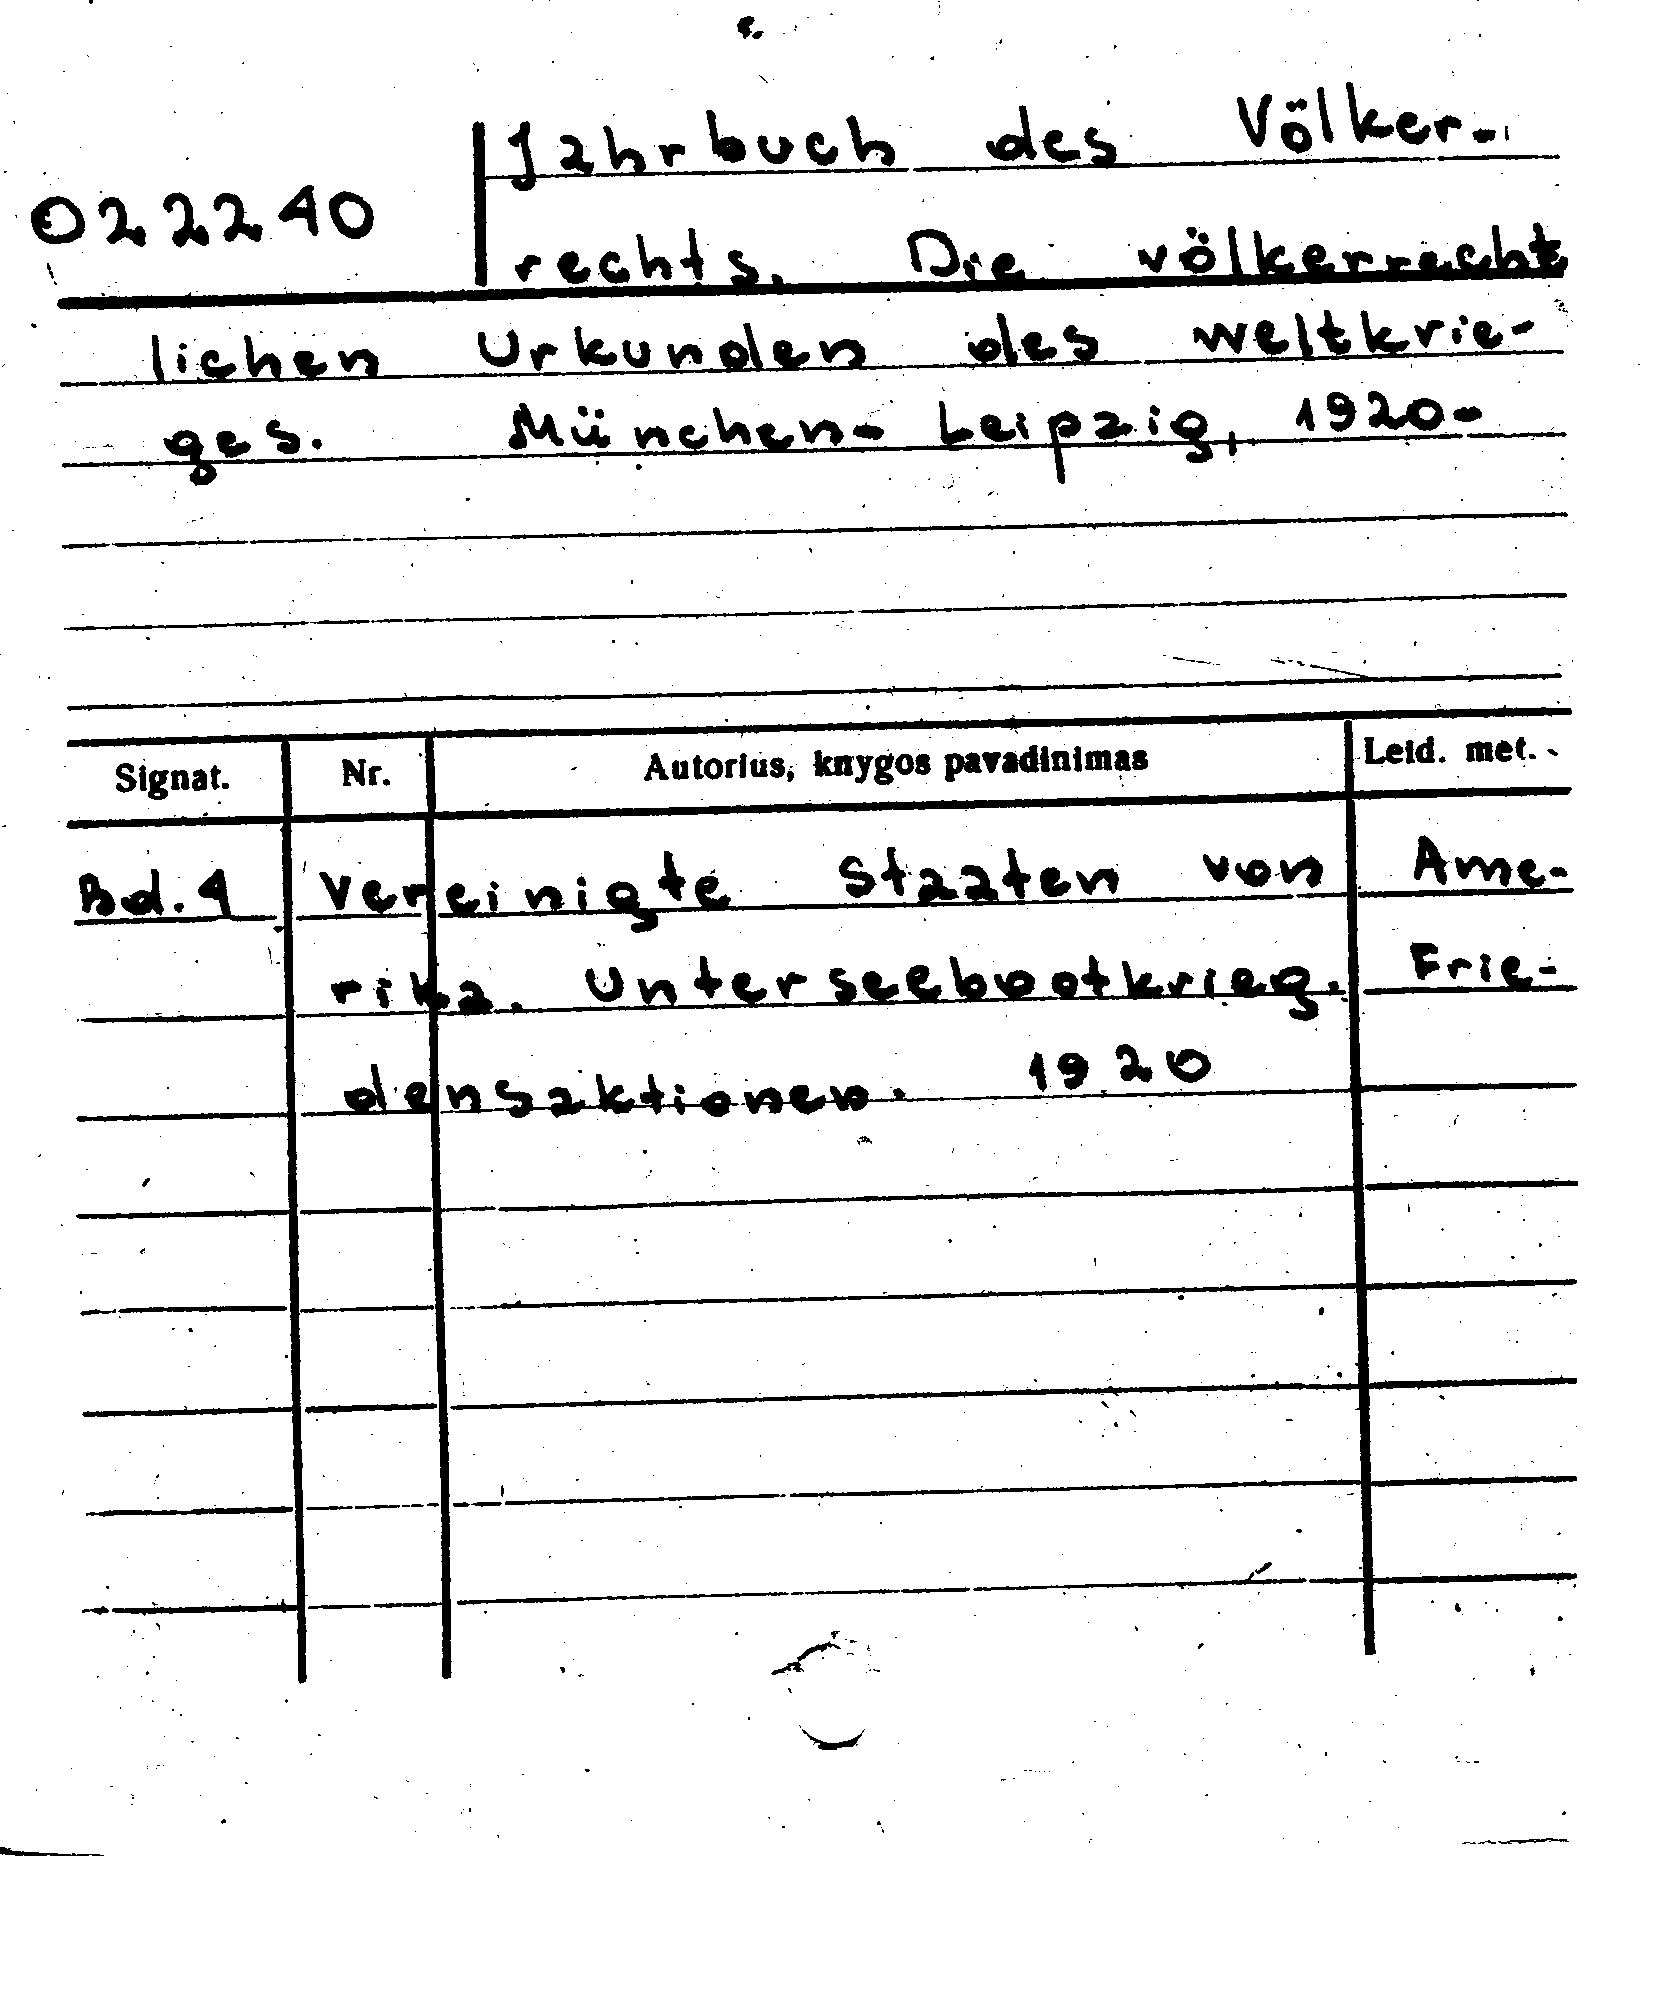 Jahrbuch des Völker-
022240
rechts. Die völkerrecht
lichen Urkunden des Weltkrie-
ges. München-Leipzig, 1920-
Signat. Nr. Autorius, knygos pavadinimas Leid. met.
Bd. 4 Vereinigte Staaten von Ame-
rika. Unterseebootkrieg. Frie-
densaktionen. 1920